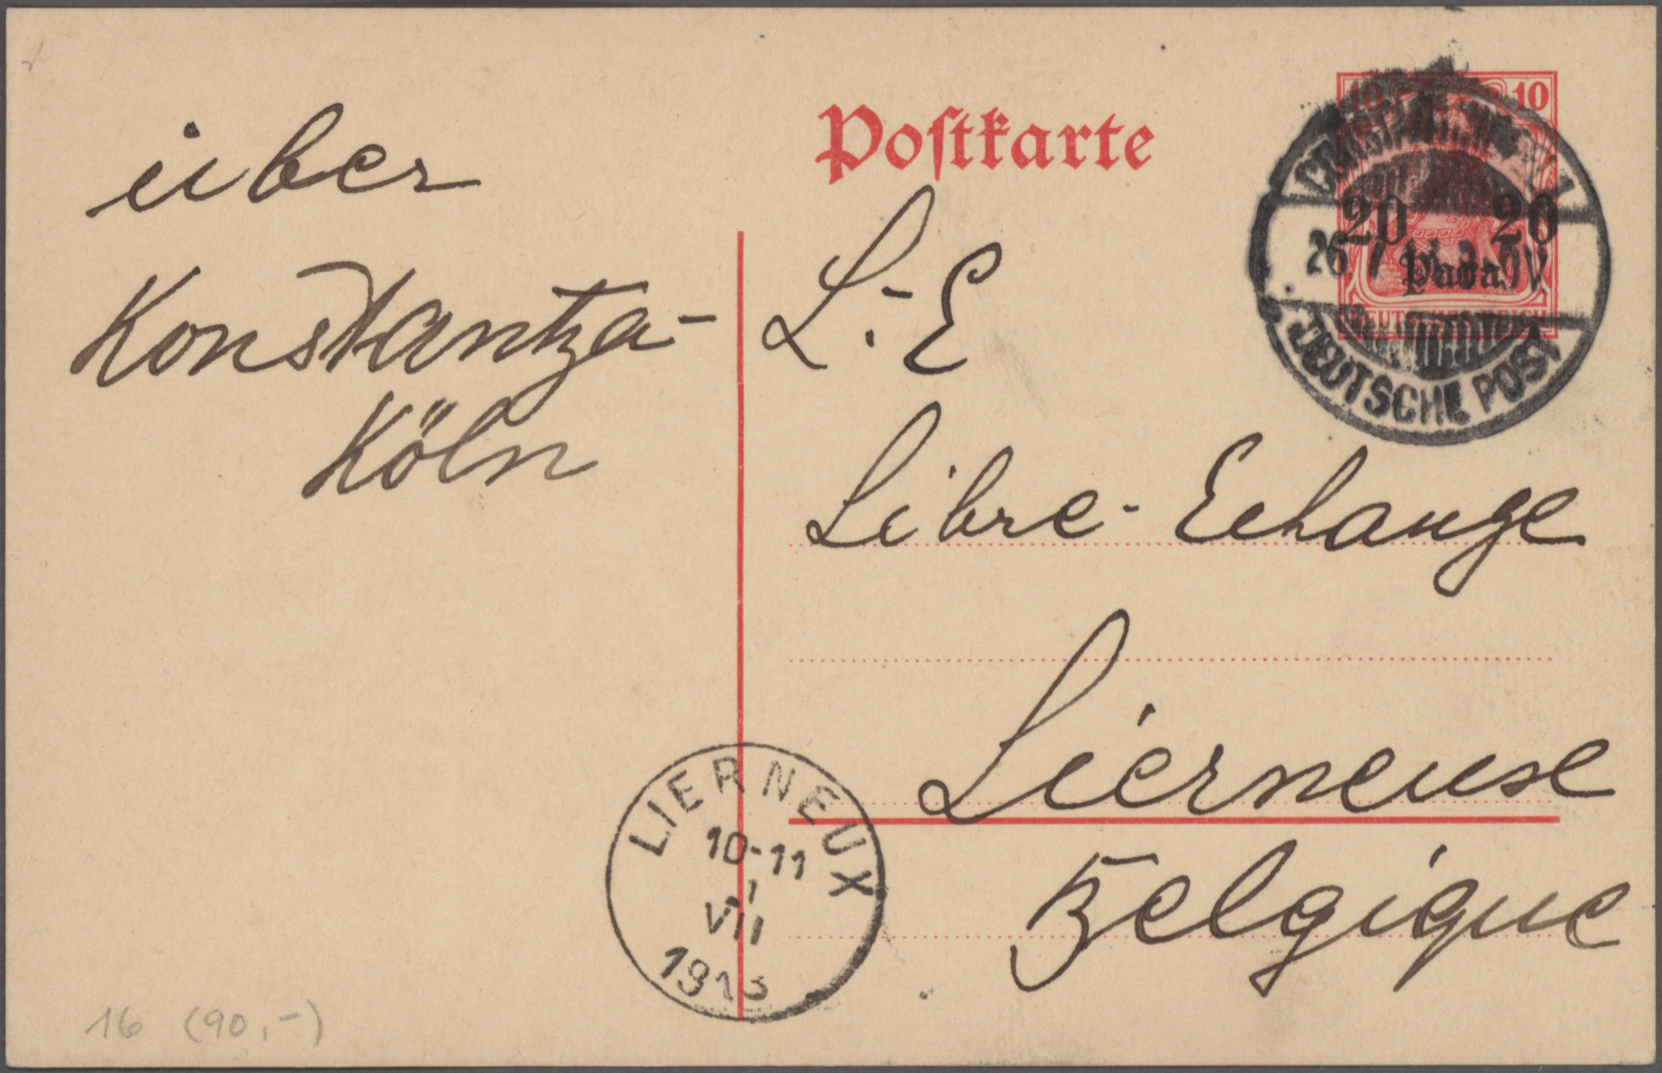 über
Konstantza-
Köln
Postkarte
L.-E
Libre-Echange
Lierneuse
Belgique
10 10
20 20
Para
DEUTSCHES REICH
DEUTSCHE POST
LIERNEUX
10-11
1
VII
1913
16 (90,-)